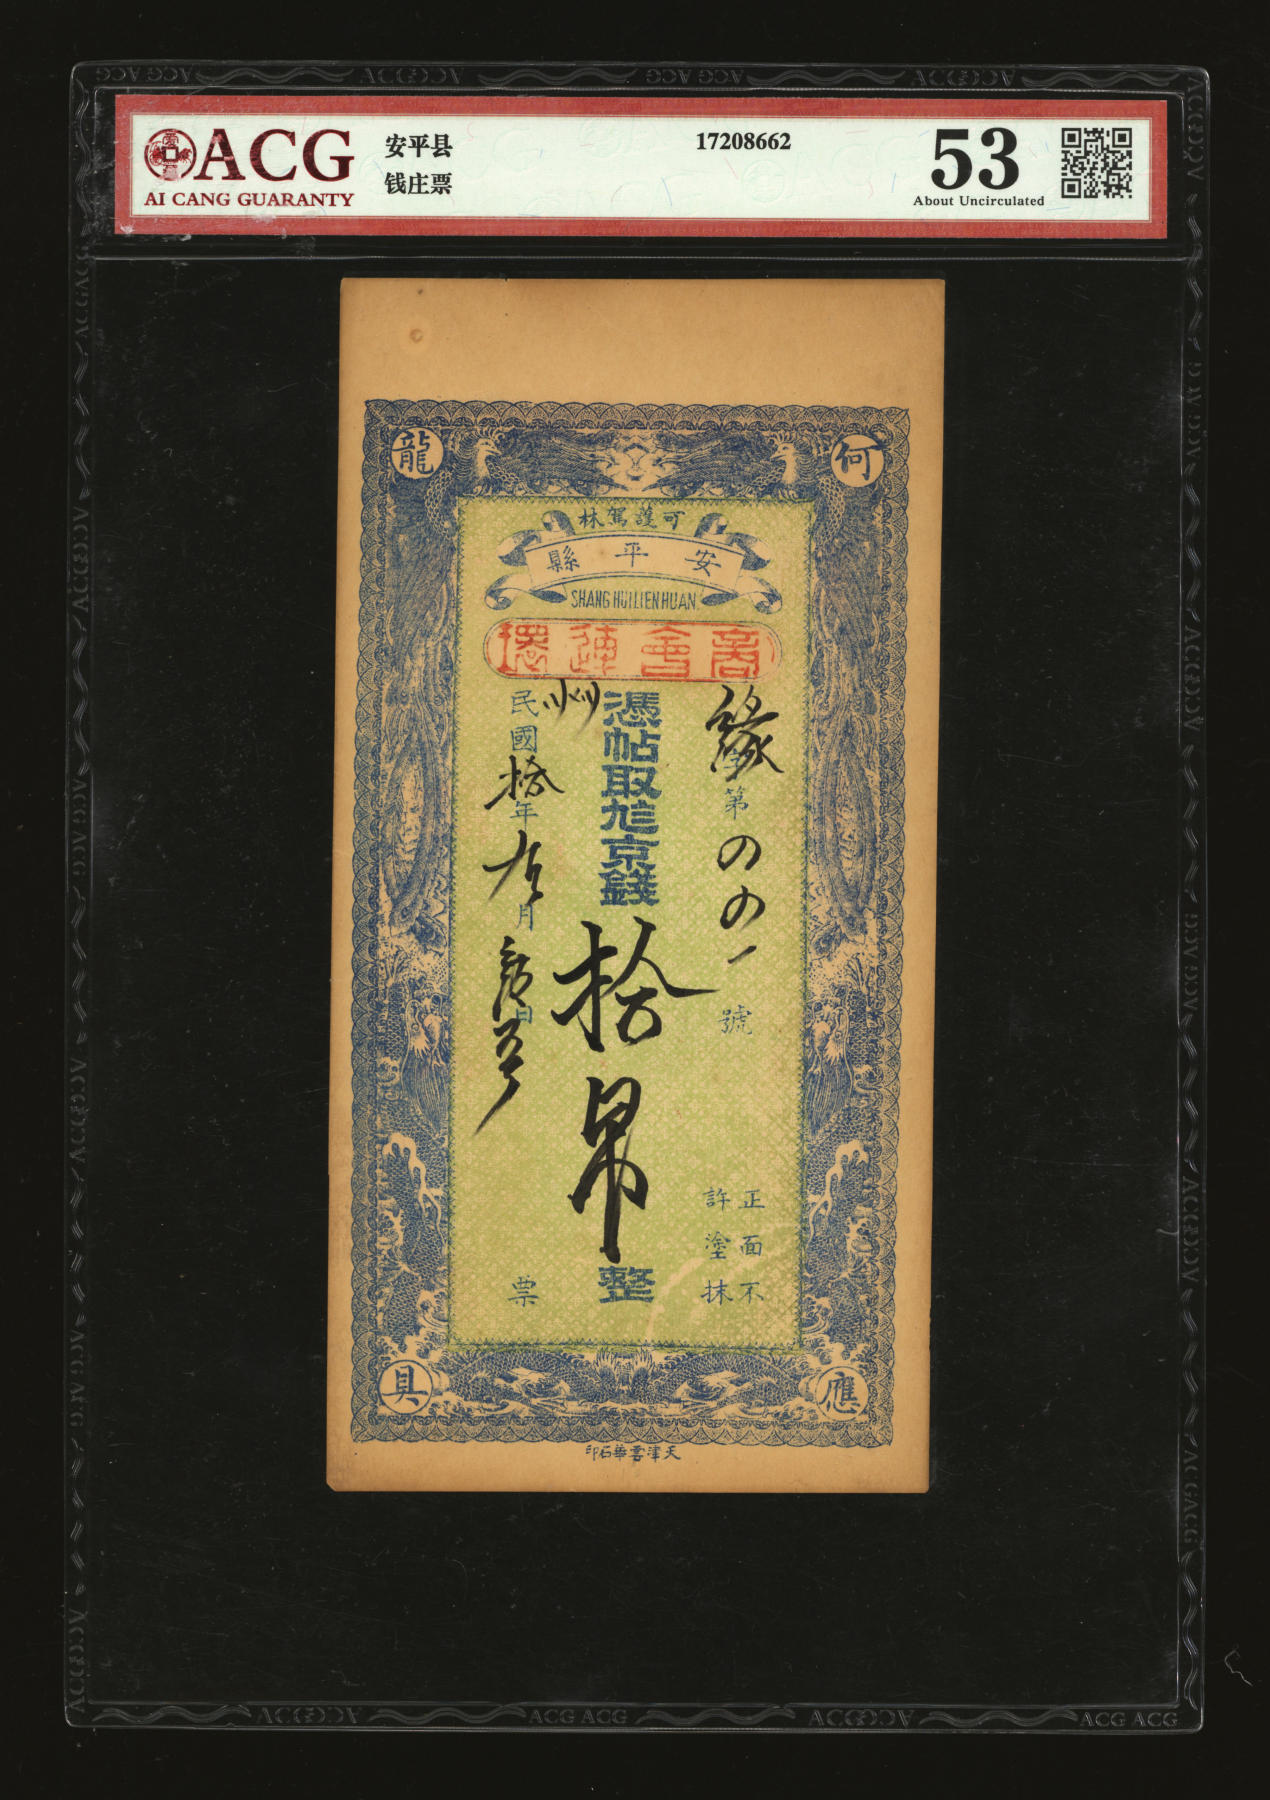 ACG
AI CANG GUARANTY
安平县
钱庄票
17208662
53
About Uncirculated
龍
何
可護駕林
安平縣
SHANG HUI LIEN HUAN
商會連環
緣
第
號
憑帖取
京錢
拾
整
民國拾年
月
日
票
正面不
許塗抹
具
應
天津雲華石印
ACG ACG